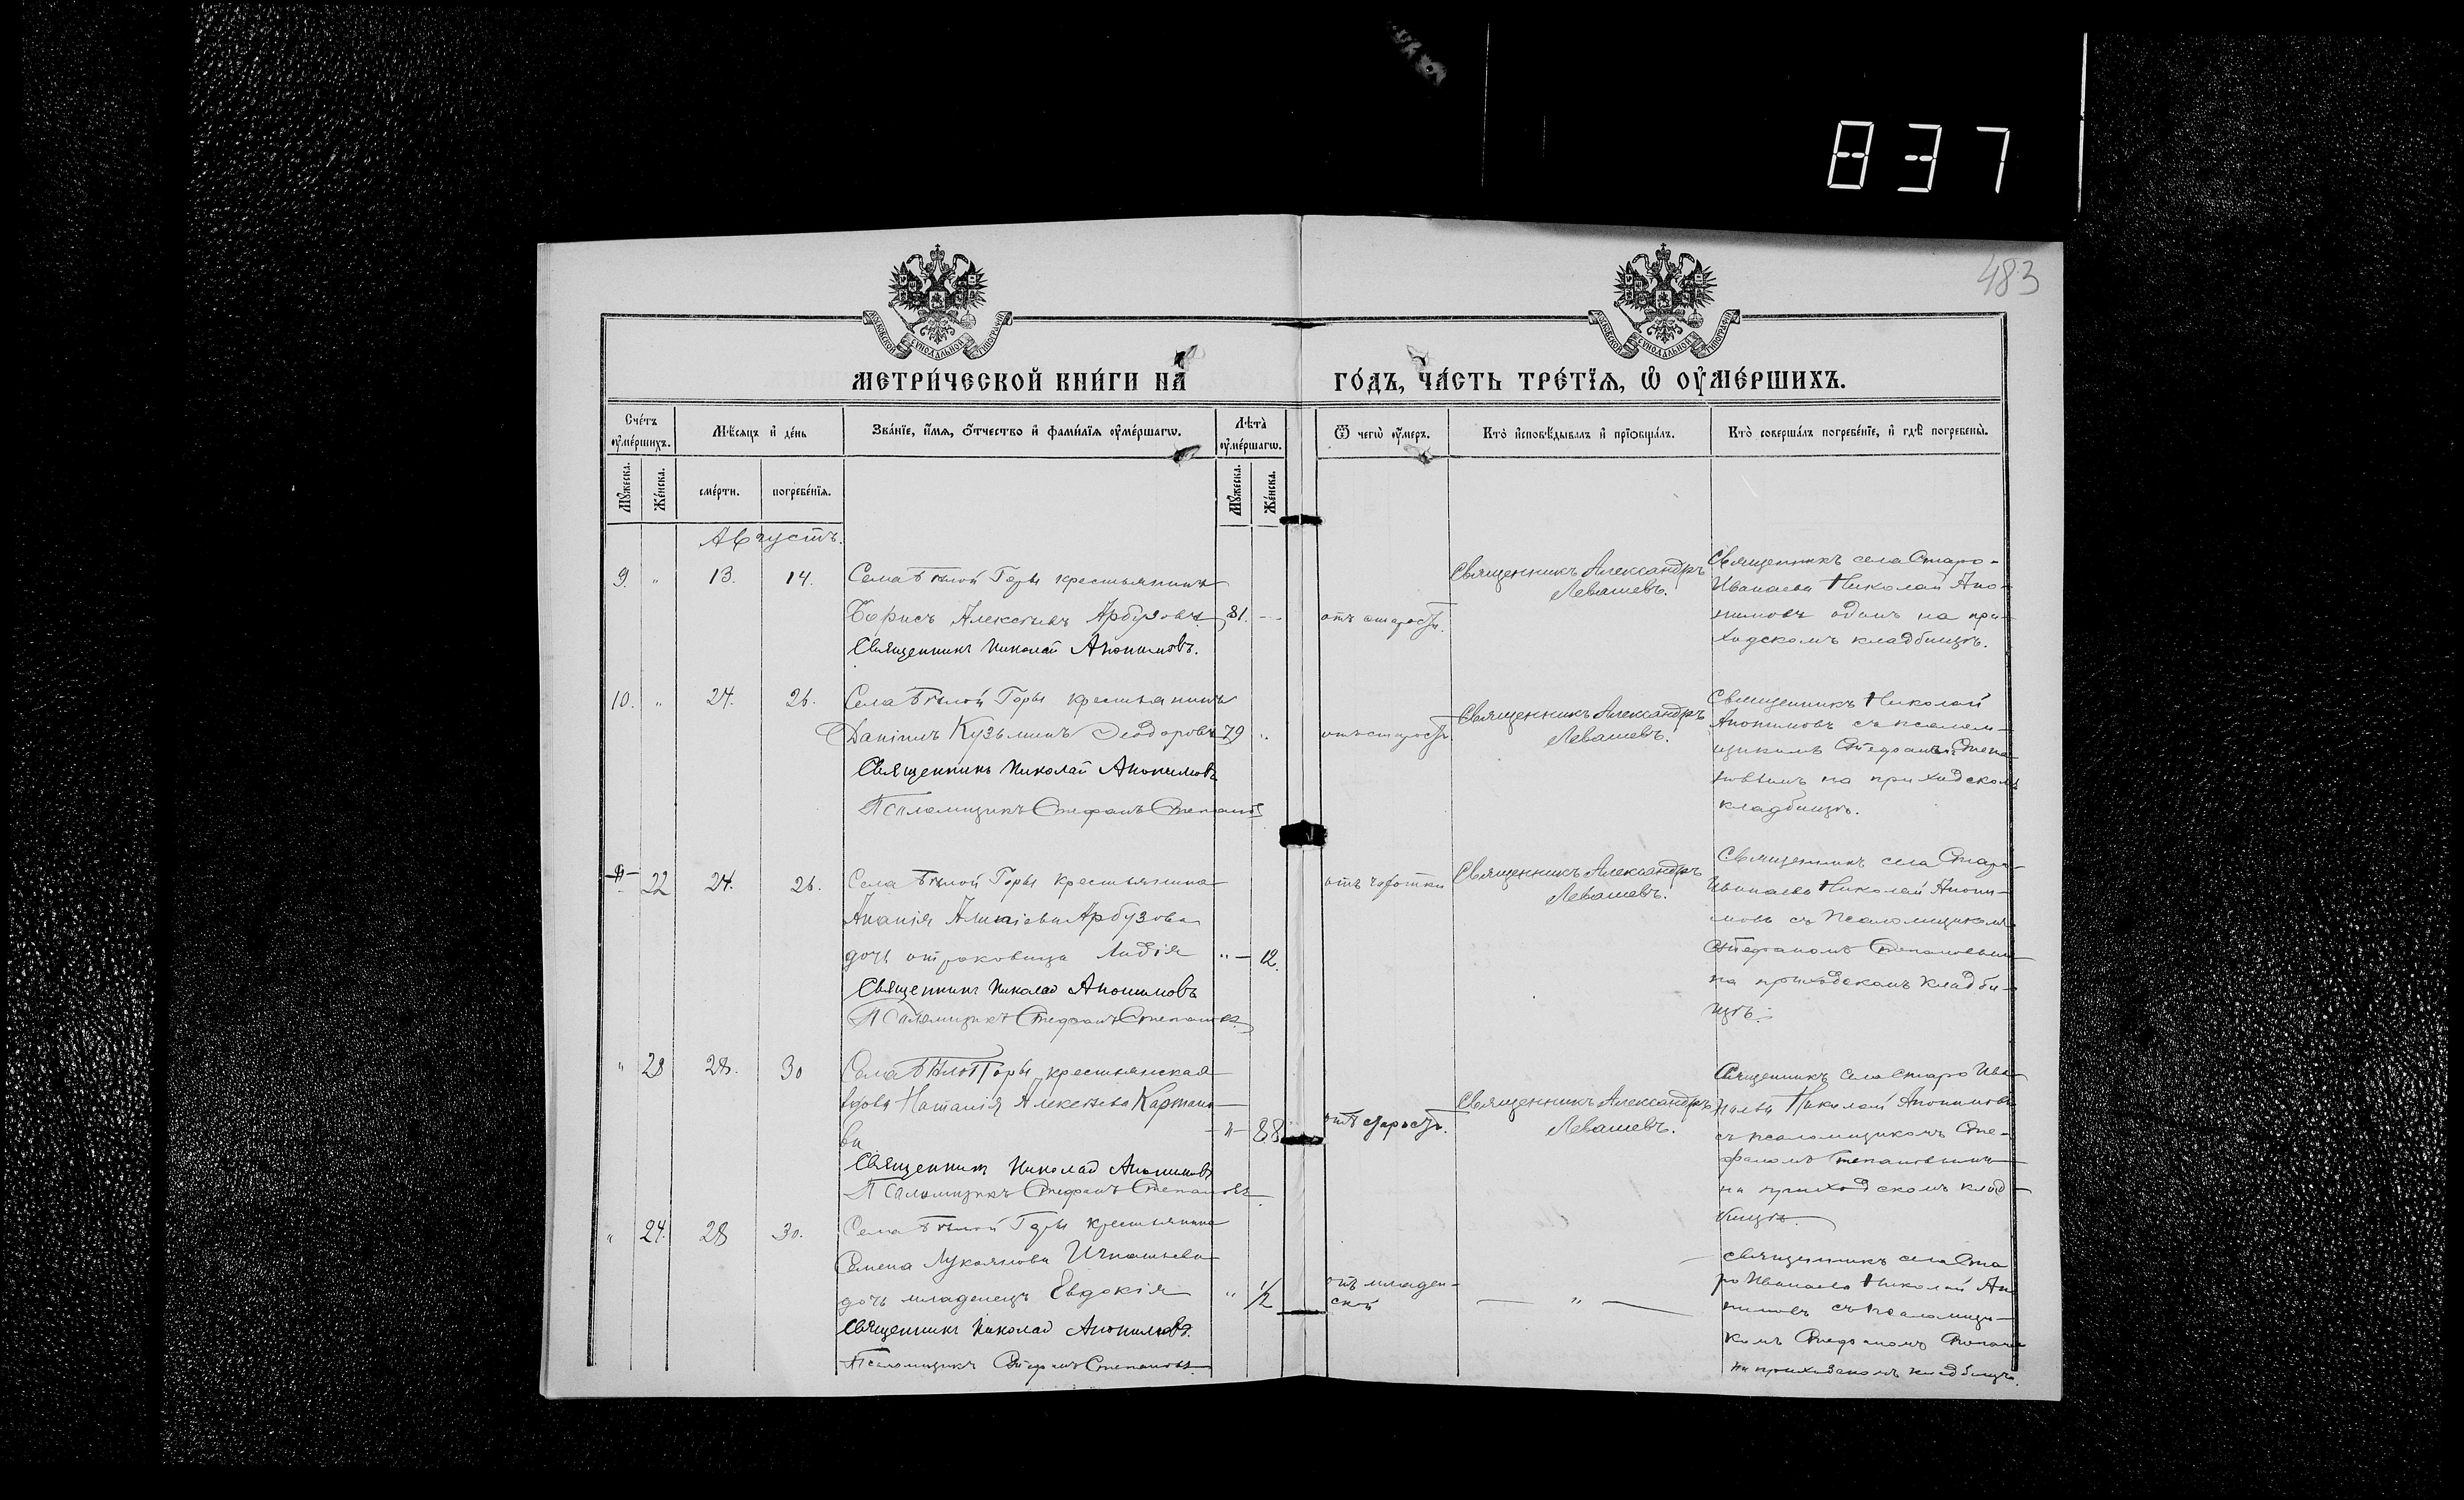 837
483
МЕТРИ́ЧЕСКОЙ КНИ́ГИ НА̀
ГО́ДЪ, ЧА́СТЬ ТРЕ́ТЇѦ, Ѡ҆ ОУ҆МЕ́РШИХЪ.
Сче́тъ оу҆ме́ршихъ.
Мѣ́сѧцъ и҆ де́нь
Зва́нїе, и҆́мѧ, ѻ҆́тчество и҆ фами́лїѧ оу҆ме́ршагѡ.
Лѣ́та̀ оу҆ме́ршагѡ.
Ѿ чегѡ̀ оу҆́меръ.
Кто̀ и҆сповѣ́дывалъ и҆ прїѡбща́лъ.
Кто̀ соверша́лъ погребе́нїе, и҆ гдѣ̀ погребены̀.
Мꙋ́жеска.
Же́нска.
сме́рти.
погребе́нїѧ.
Мꙋ́жеска.
Же́нска.
Августъ.
9. " 13. 14.
Села Бѣлой Горы крестьянинъ
Борисъ Алексѣевъ Арбузовъ 81. --
Священникъ Николай Анонимовъ.
отъ старости.
Священникъ Александръ
Левашевъ.
Священникъ села Старо-
Иванаева Николай Ано-
нимовъ одинъ на при-
ходскомъ кладбищѣ.
10. " 24. 26.
Села Бѣлой Горы крестьянинъ
Даніилъ Кузьминъ Ѳеодоровъ 79 "
Священникъ Николай Анонимовъ
Псаломщикъ Стефанъ Степановъ
отъ старости.
Священникъ Александръ
Левашевъ.
Священникъ Николай
Анонимовъ съ псалом-
щикомъ Стефаномъ Степа-
новымъ на приходскомъ
кладбищѣ.
22 24. 26.
Села Бѣлой Горы крестьянина
Ананія Арбузова
дочь отроковица Лидія " 12.
Священникъ Николай Анонимовъ
Псаломщикъ Стефанъ Степановъ.
отъ чахотки
Священникъ Александръ
Левашевъ.
Священникъ села Старо-
Иванаева Николай Анони-
мовъ съ псаломщикомъ
Стефаномъ Степановымъ
на приходскомъ кладби-
щѣ.
" 23 28. 30
Села Бѣлой Горы крестьянская
вдова Наталія Алексѣева
ва " 88
Священникъ Николай Анонимовъ
Псаломщикъ Стефанъ Степановъ
отъ старости.
Священникъ Александръ
Левашевъ.
Священникъ села Старо Ива-
наева Николай Анонимовъ
съ псаломщикомъ Сте-
фаномъ Степановымъ
на приходскомъ клад-
бищѣ.
" 24. 28 30.
Села Бѣлой Горы крестьянина
Семена Лукоянова Игнатьева
дочь младенецъ Евдокія " 1/2
Священникъ Николай Анонимовъ.
Псаломщикъ Стефанъ Степановъ.
отъ младен-
ской
— " —
Священникъ села Ста
ро Иванаева Николай Ано
нимовъ съ псаломщи-
комъ Стефаномъ Степано
на приходскомъ кладбищѣ.